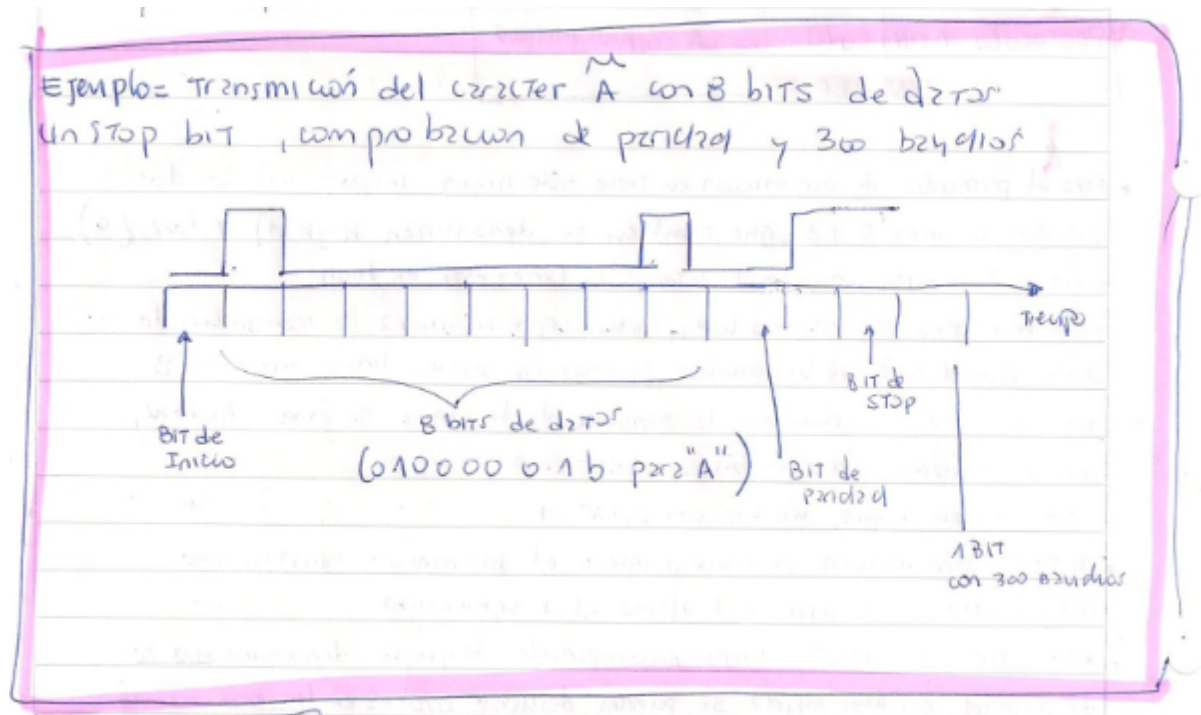 Ejemplo = Transmición del caracter A con 8 bits de datos
un stop bit, comprobacion de paridad y 300 baudios
Tiempo
Bit de
Inicio
8 bits de datos
(01000001b para "A")
Bit de
paridad
Bit de
Stop
1 Bit
con 300 Baudios